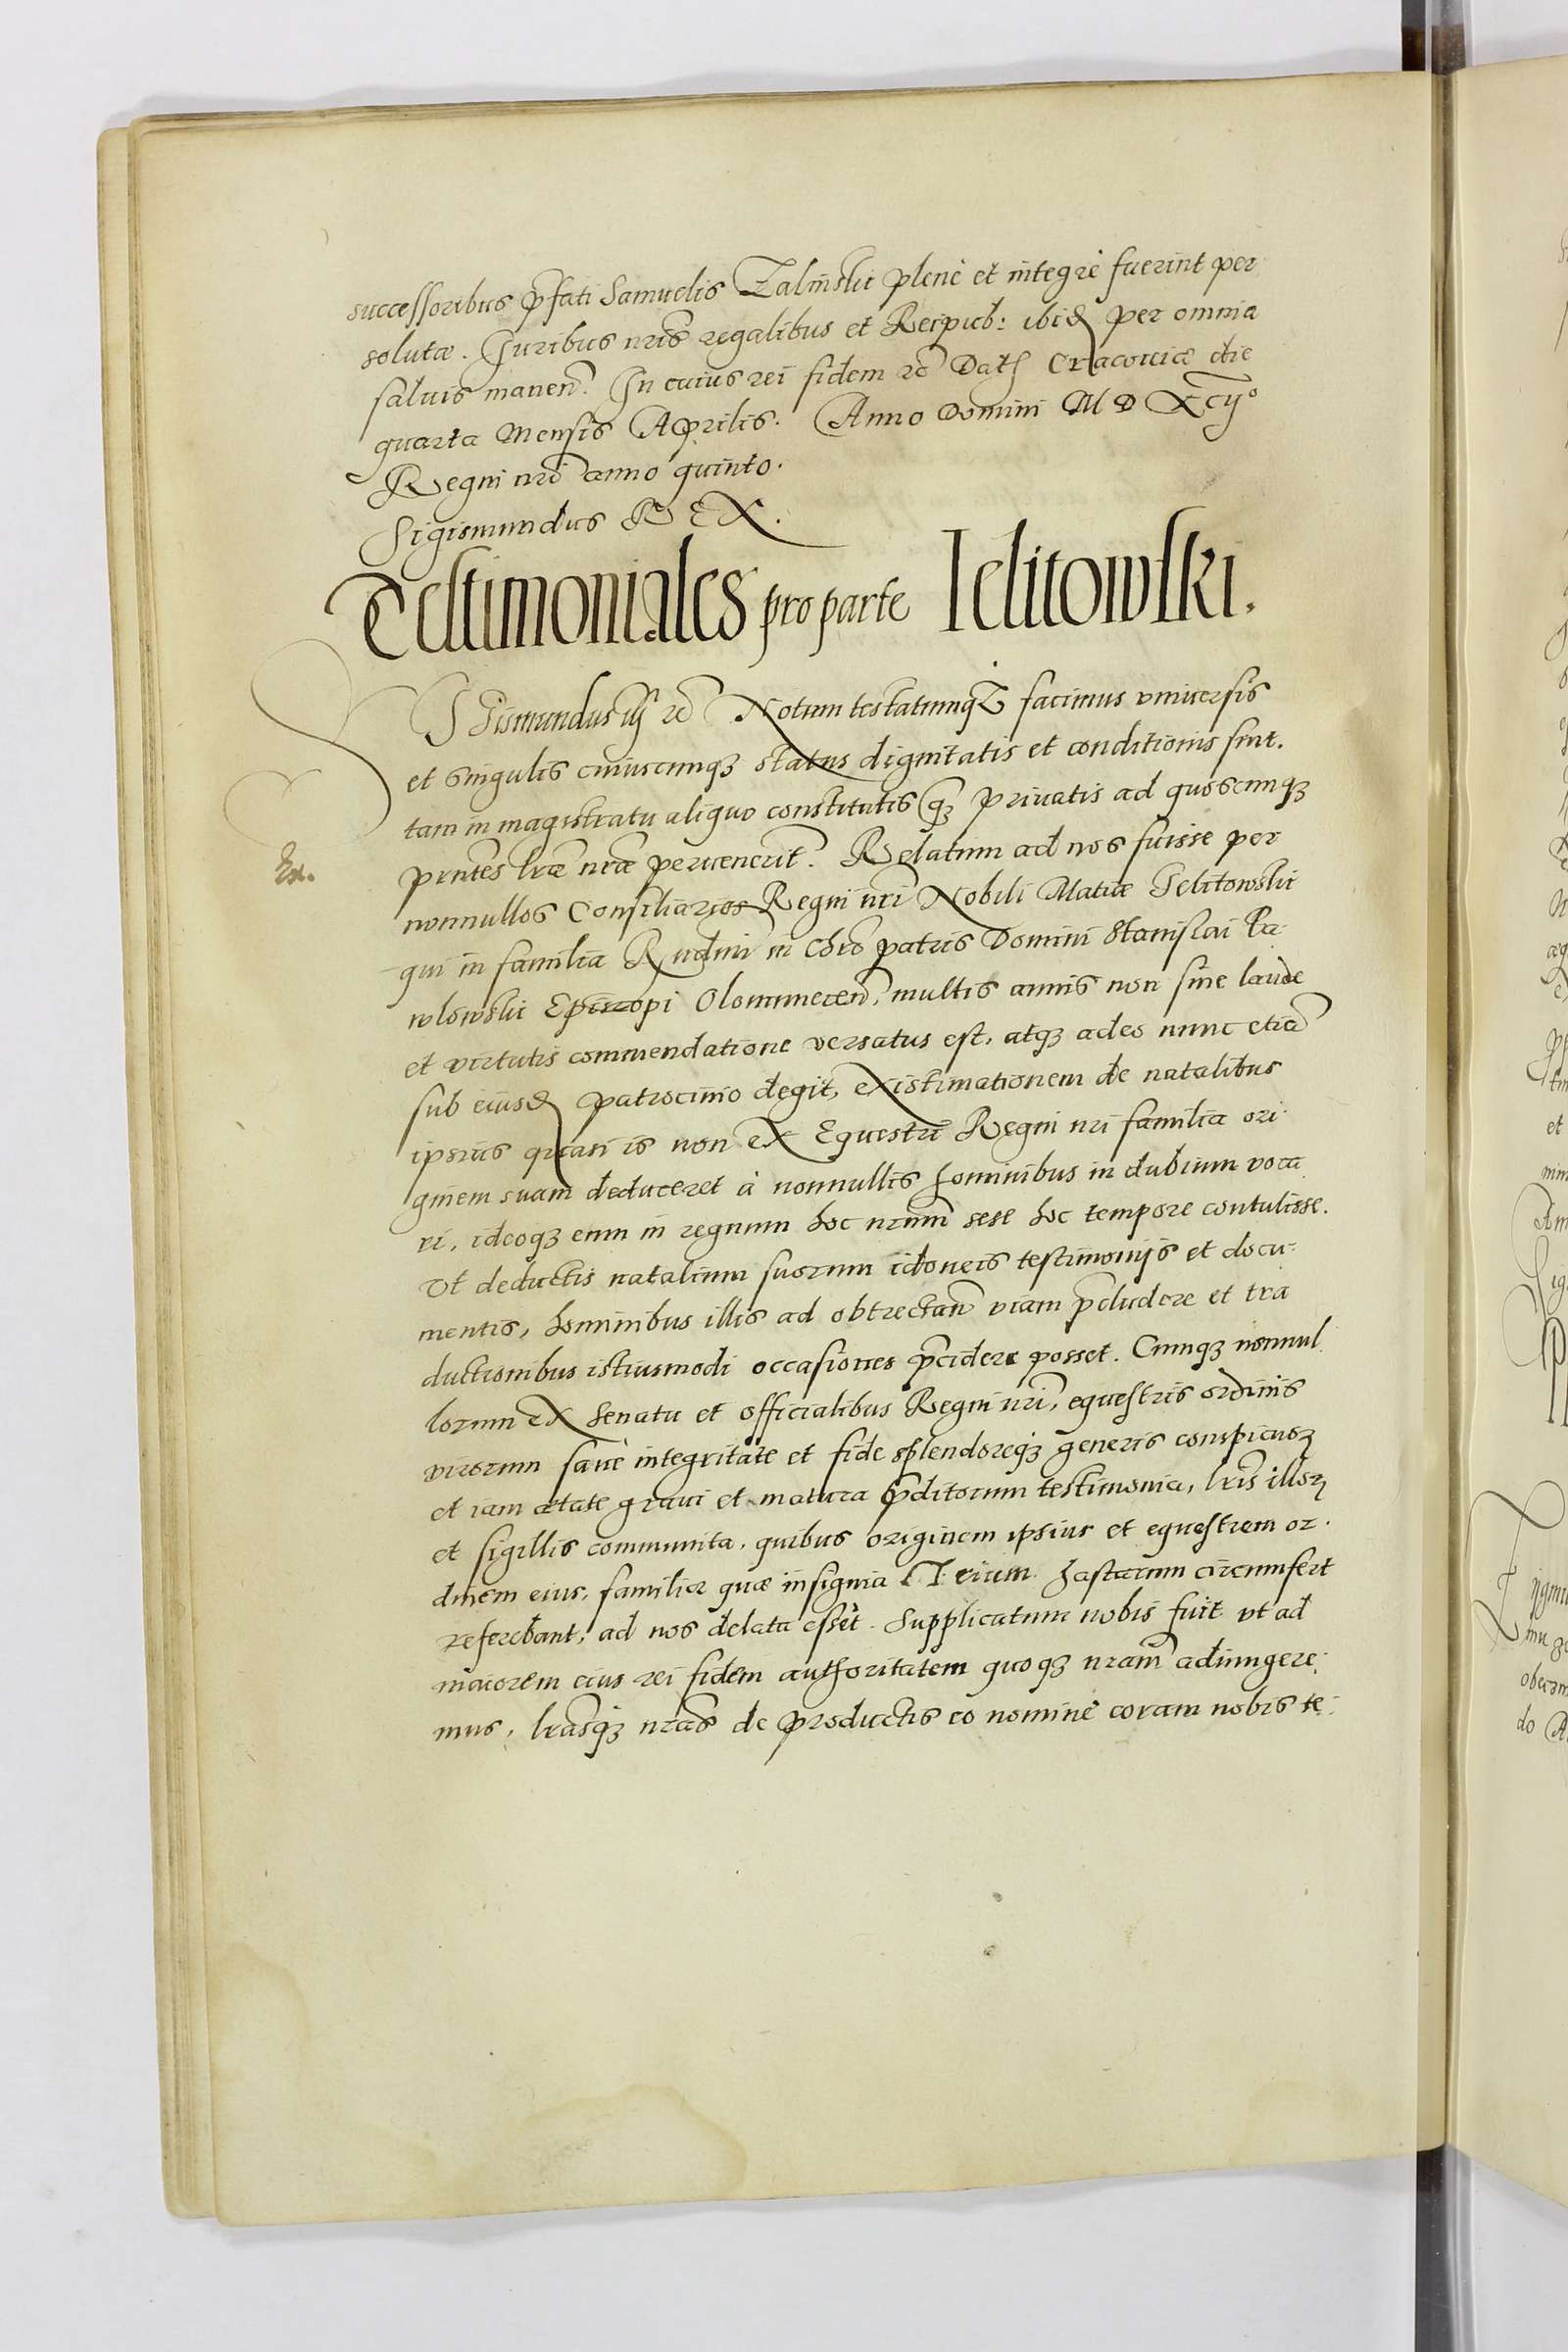 successoribus pfati Samuelis Zalinskii plenè et integrè fuerint per
solutæ. Iuribus nris regalibus et Reipub: ibid per omnia
saluis manen. In cuius rei fidem etc Dat Cracouiæ die
quarta Mensis Aprilis. Anno Domini M D XCij°
Regni nri anno quinto.
Sigismundus REX.
Testimoniales pro parte Ielitowski.
SIgismundus iij etc Notum testatumq3 facimus vniuersis
et singulis cuiuscunq3 status dignitatis et conditionis sint.
tam in magistratu aliquo constitutis q3 priuatis ad quoscunq3
pntes lræ nræ peruenerit. Relatum ad nos fuisse per
nonnullos Consiliarios Regni nri Nobili Matiæ Ielitowskii
qui in familia Rndmi in Chro patris Domini Stanislai Pa-
wlowskii Episcopi Olomucen, multis annis non sine laude
et virtutis commendatione versatus est, atq3 adeo nunc etia
sub eiusd patrocinio degit, existimationem de natalibus
ipsius quasi is non ex Equestri Regni nri familia ori-
ginem suam deduceret à nonnullis hominibus in dubium voca
ri, ideoq3 eum in regnum hoc nrum sese hoc tempore contulisse.
Vt deductis natalium suorum idoneis testimonijs et docu-
mentis, hominibus illis ad obtrectan viam pcludere et tra
ductionibus istiusmodi occasiones pcidere posset. Cumq3 nonnul
lorum ex Senatu et officialibus Regni nri, equestris ordinis
virorum sanè integritate et fide splendoreq3 generis conspicuor
et iam ætate graui et matura pditorum testimonia, lris illor
et sigillis communita, quibus originem ipsius et equestrem or-
dinem eius, familiæ quæ insignia Trium hastarum circumfert
referebant, ad nos delata essèt. Supplicatum nobis fuit vt ad
maiorem eius rei fidem authoritatem quoq3 nram adiungere-
mus, lrasq3 nras de productis eo nomine coram nobis te-
Ex.